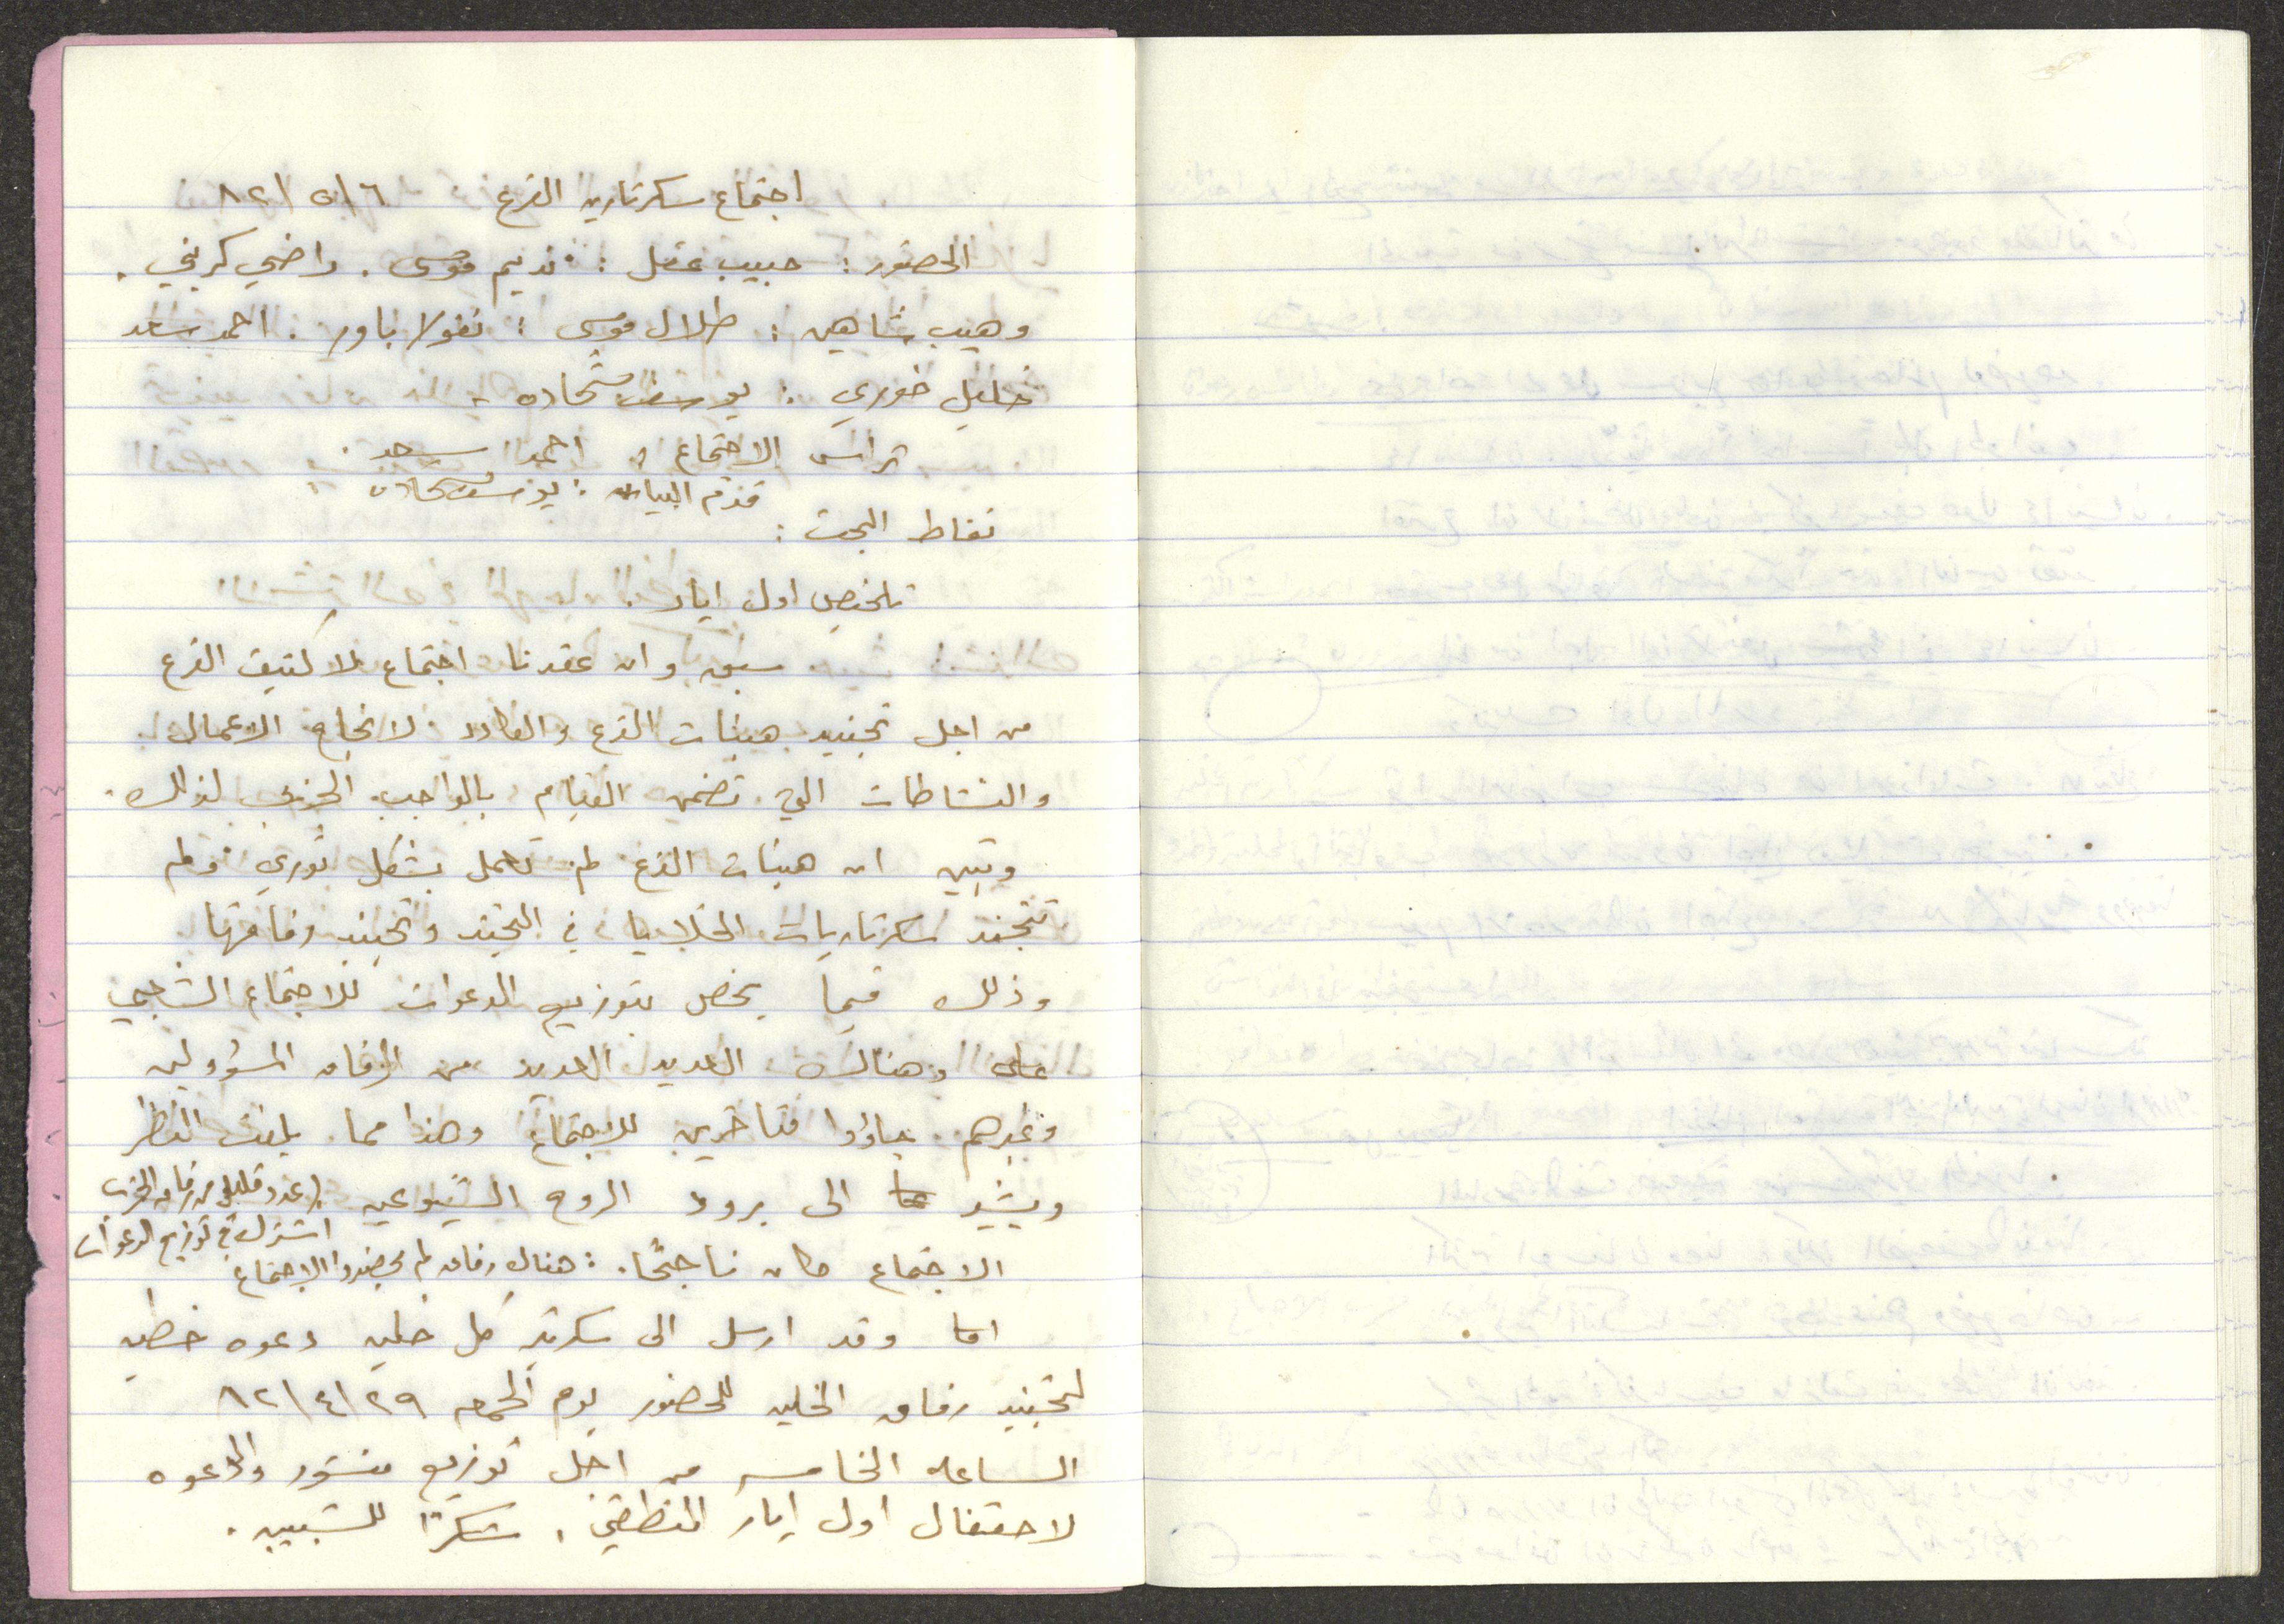 اجتماع سكرتاريه الفرع ٨٢/٥/٦
الحضور : حبيب عقل : نديم موسى . راضي كريني .
وهيب شاهين : طلال موسى : نقولا باور . احمد سعد
خليل خوري : يوسف شحاده -
ترأس الاجتماع : احمد سعد .
قدم البيان : يوسف شحاده
نقاط البحث :
تلخيص اول ايار .
سبق وان عقدنا اجتماع لاكتيف الفرع
من اجل تجنيد هيئات الفرع والكادر لانجاح الاعمال
والنشاطات التي تضمن القيام بالواجب الحزبي لذلك .
وتبين ان هيئات الفرع لم تعمل بشكل ثوري ولم
تتجند سكرتاريات الخلايا في التجند وتجنيد رفاقها .
وذلك فيما يخص بتوزيع الدعوات للاجتماع الشعبي
على وهنالك العديد العديد من الرفاق المسؤولين
وغيرهم جاؤوا متأخرين للاجتماع وهذا مما يلفت النظر
ويشير عما الى برود الروح الشيوعيه . عدد قليل من رفاق الحزب
اشترك في توزيع الدعوات
الاجتماع كان ناجحًا . : هناك رفاق لم يحضروا الاجتماع
اما وقد ارسل الى سكرتير كل خليه دعوه خطيه
لتجنيد رفاق الخليه للحضور يوم الجمعه ٨٢/٤/٢٩
الساعه الخامسه من اجل توزيع منشور والدعوه
لاحتفال اول ايار المنطقي . شكرًا للشبيبه .